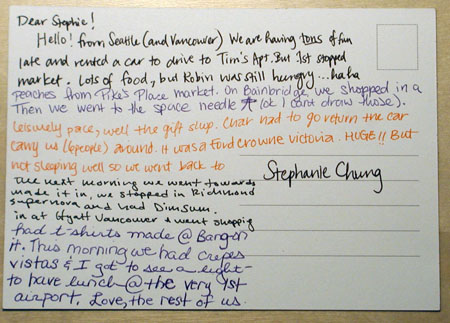 Dear Stephie!
Hello! from Seattle (and Vancouver) We are having tons of fun
late and rented a car to drive to Tim's Apt. But 1st stopped
market. Lots of food, but Robin was still hungry... haha
peaches from Pike's Place market. On Bainbridge, we shopped in a
Then we went to the space needle (ok I cant draw those).
Leisurely pace, well the gift shop. Char had to go return the car
carry us (6 people) around. It was a Ford crowne victoria. HUGE!! But
not sleeping well so we went back to
Stephanie Chung
The next morning we went towards
made it in, we stopped in Richmond
supernova and had Dim Sum.
in at Hyatt Vancouver & went shopping
had t-shirts made @ Bang-on
it. This morning we had crepes
vistas & I got to see a light-
to have lunch @ the very 1st
airport. Love, the rest of us